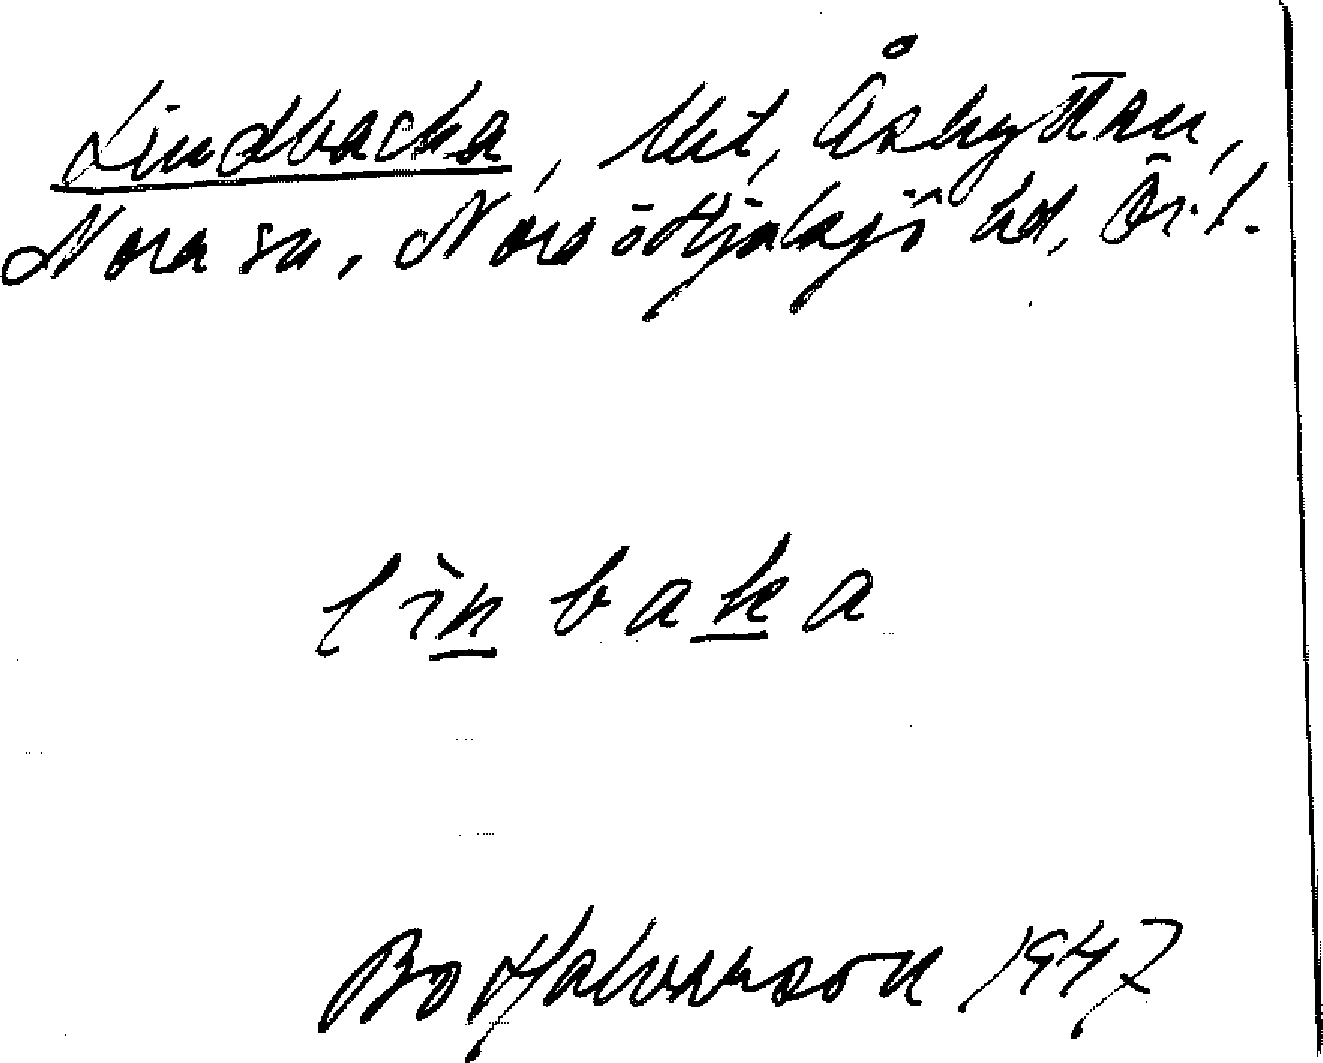 Lindbacka, lht, Åshyttan,
Nora sn, Nora ö Hjulsjö hd, Ör. l.
lìn baka
Bo Halvarson 1947